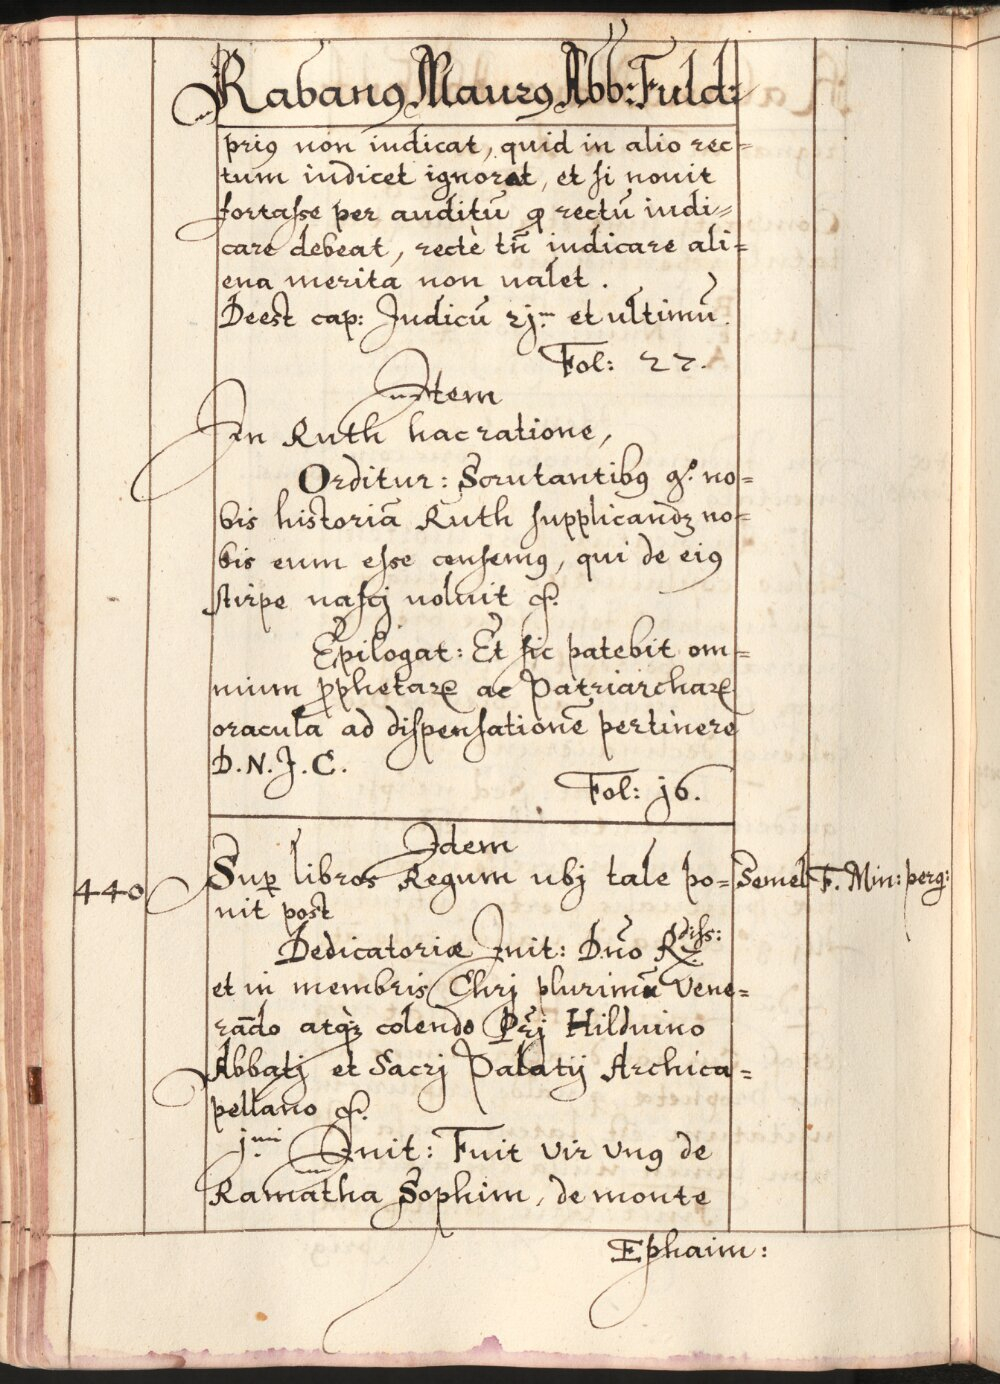 Rabanꝰ Maurꝰ Abb: Fuld:
priꝰ non iudicat, quid in alio rec=
tum iudicet ignorat, et si nouit
fortasse per auditū ꝙ rectū iudi=
care debeat, rectè tñ iudicare ali=
ena merita non ualet.
Deest cap: Judicū 2j.m et ultimū.
Fol: 27.
Item
In Ruth hac ratione,
Orditur: Scrutantibꝰ gͦ. no=
bis historiā Ruth supplicandꝫ no=
bis eum esse censemꝰ, qui de eiꝰ
stirpe nascj uoluit &.
Epilogat: Et sic patebit om=
nium ꝓphetarꝝ ac Patriarcharꝝ
oracula ad dispensationē pertinere
D. N. J. C.
Fol: j6.
Idem
440 Suꝑ libros Regum ubj tale po= Semel F. Min: perg:
nit post
Dedicatoriæ Init: Dño R.diss:
et in membris Chrj plurimū Vene=
rādo atqꝫ colendo Prj Hilduino
Abbatj et Sacrj Palatij Archica=
pellano &.
j.mi Init: Fuit vir vnꝰ de
Ramatha Sophim, de monte
Ephaim: